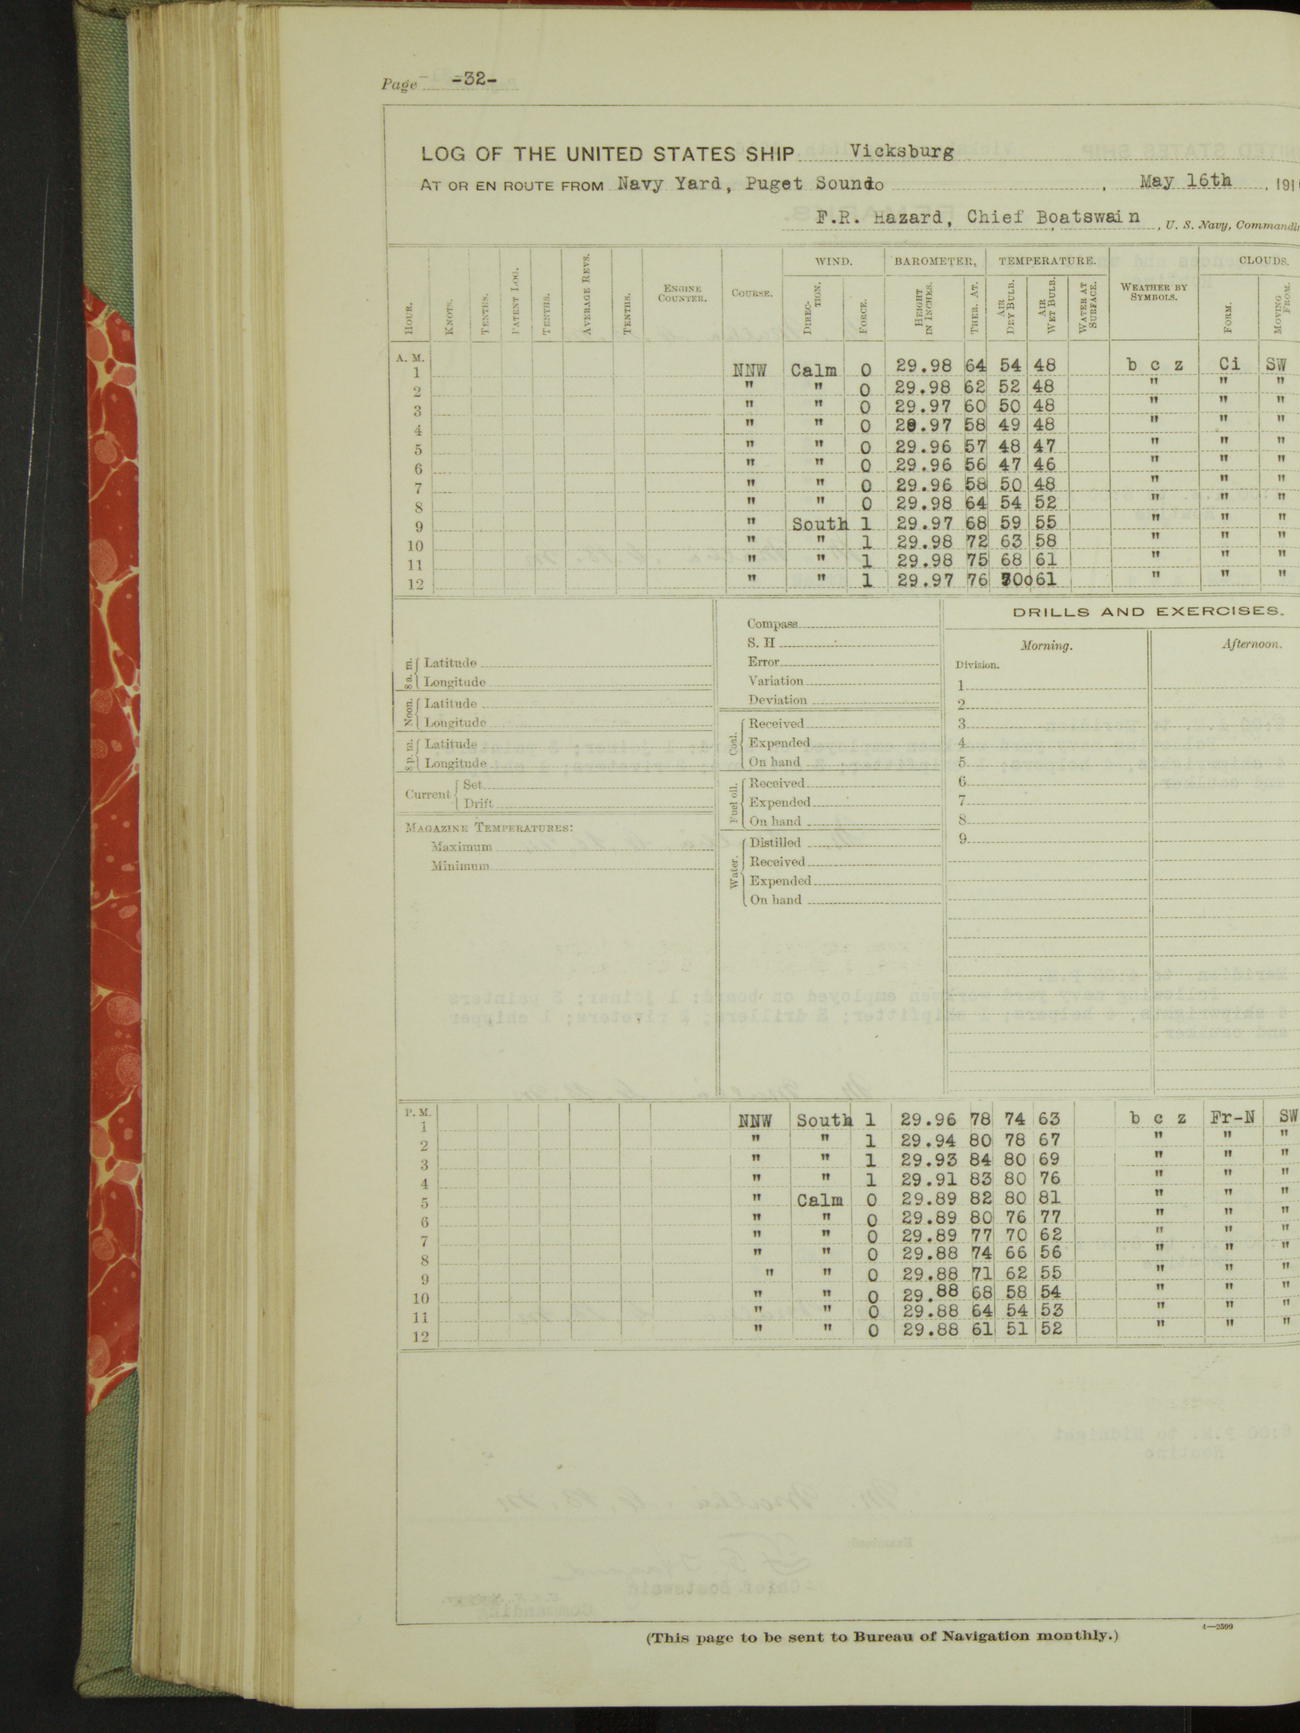 Page -32-
LOG OF THE UNITED STATES SHIP Vicksburg
AT OR EN ROUTE FROM Navy Yard, Puget Sound to , May 16th , 191
F.R. Hazard, Chief Boatswain , U. S. Navy, Commandi
WIND. BAROMETER, TEMPERATURE. CLOUDS.
HOUR. KNOTS. TENTHS. PATENT LOG. TENTHS. AVERAGE REVS. TENTHS. ENGINE COUNTER. COURSE. DIRECTION. FORCE. HEIGHT IN INCHES. THER. AT. AIR DRY BULB. AIR WET BULB. WATER AT SURFACE. WEATHER BY SYMBOLS. FORM. MOVING FROM.
A. M.
1 NNW Calm 0 29.98 64 54 48 b c z Ci SW
2 " " 0 29.98 62 52 48 " " "
3 " " 0 29.97 60 50 48 " " "
4 " " 0 29.97 58 49 48 " " "
5 " " 0 29.96 57 48 47 " " "
6 " " 0 29.96 56 47 46 " " "
7 " " 0 29.96 58 50 48 " " "
8 " " 0 29.98 64 54 52 " " "
9 " South 1 29.97 68 59 55 " " "
10 " " 1 29.98 72 63 58 " " "
11 " " 1 29.98 75 68 61 " " "
12 " " 1 29.97 76 70 61 " " "
DRILLS AND EXERCISES.
Morning. Afternoon.
Division.
1
2
3
4
5
6
7
8
9
8 a. m. Latitude
Longitude
Noon. Latitude
Longitude
8 p. m. Latitude
Longitude
Current Set
Drift
MAGAZINE TEMPERATURES:
Maximum
Minimum
Compass
S. H
Error
Variation
Deviation
Coal. Received
Expended
On hand
Fuel oil. Received
Expended
On hand
Water. Distilled
Received
Expended
On hand
P. M.
1 NNW South 1 29.96 78 74 63 b c z Fr-N SW
2 " " 1 29.94 80 78 67 " " "
3 " " 1 29.93 84 80 69 " " "
4 " " 1 29.91 83 80 76 " " "
5 " Calm 0 29.89 82 80 81 " " "
6 " " 0 29.89 80 76 77 " " "
7 " " 0 29.89 77 70 62 " " "
8 " " 0 29.88 74 66 56 " " "
9 " " 0 29.88 71 62 55 " " "
10 " " 0 29.88 68 58 54 " " "
11 " " 0 29.88 64 54 53 " " "
12 " " 0 29.88 61 51 52 " " "
(This page to be sent to Bureau of Navigation monthly.)
4—2599